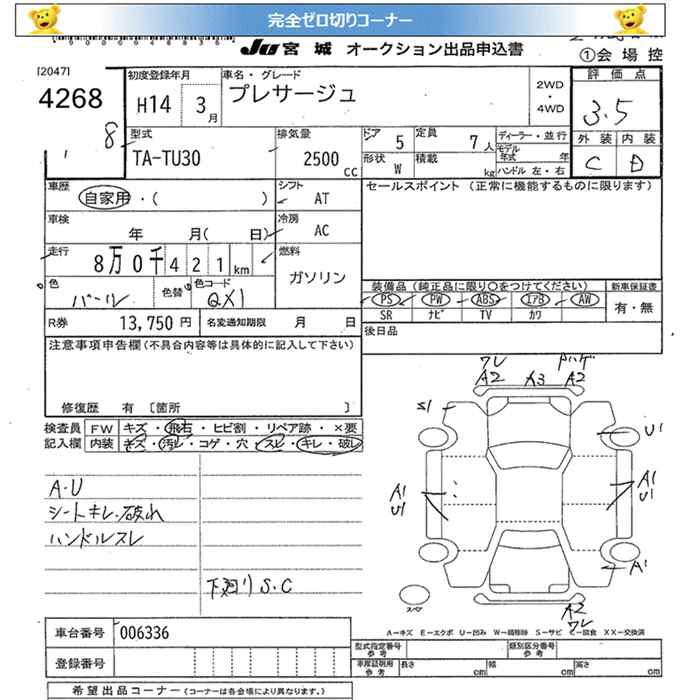 完全ゼロ切りコーナー
JU宮城 オークション出品申込書
①会場控
[2047]
4268
8
初度登録年月
H14 3月
車名・グレード
プレサージュ
2WD
・
4WD
評価点
3.5
型式
TA-TU30
排気量
2500 CC
ドア 5
定員 7人
ディーラー・並行
モデル年式 年
形状 W
積載 kg
ハンドル 左・右
外装 内装
C D
車歴
自家用・( )
シフト
AT
セールスポイント (正常に機能するものに限ります)
車検
年 月( 日)
冷房
AC
走行
8万0千421km
燃料
ガソリン
色
パール
色替
色コード
QX1
装備品(純正品に限り○をつけてください)
新車保証書
PS PW ABS エアB AW
SR ナビ TV カワ
有・無
R券 13,750円
名変通知期限 月 日
後日品
注意事項申告欄(不具合内容等は具体的に記入して下さい)
修復歴 有 〔箇所 〕
検査員記入欄
FW キズ・飛石・ヒビ割・リペア跡・×要
内装 キズ・汚レ・コゲ・穴・スレ・キレ・破レ
A・U
シートキレ、破れ
ハンドルスレ
下廻りS.C
ワレ
A2 X3 A2
S1
U1
A1
U1
A1
U1
A1
スペア
A2
ワレ
A=キズ E=エクボ U=凹み W=補修跡 S=サビ C=腐食 XX=交換済
車台番号 006336
登録番号
型式指定番号 参考
類別区分番号 参考
車庫証明用 参考
長さ cm 幅 cm 高さ cm
希望出品コーナー (コーナーは各会場により異なります。)